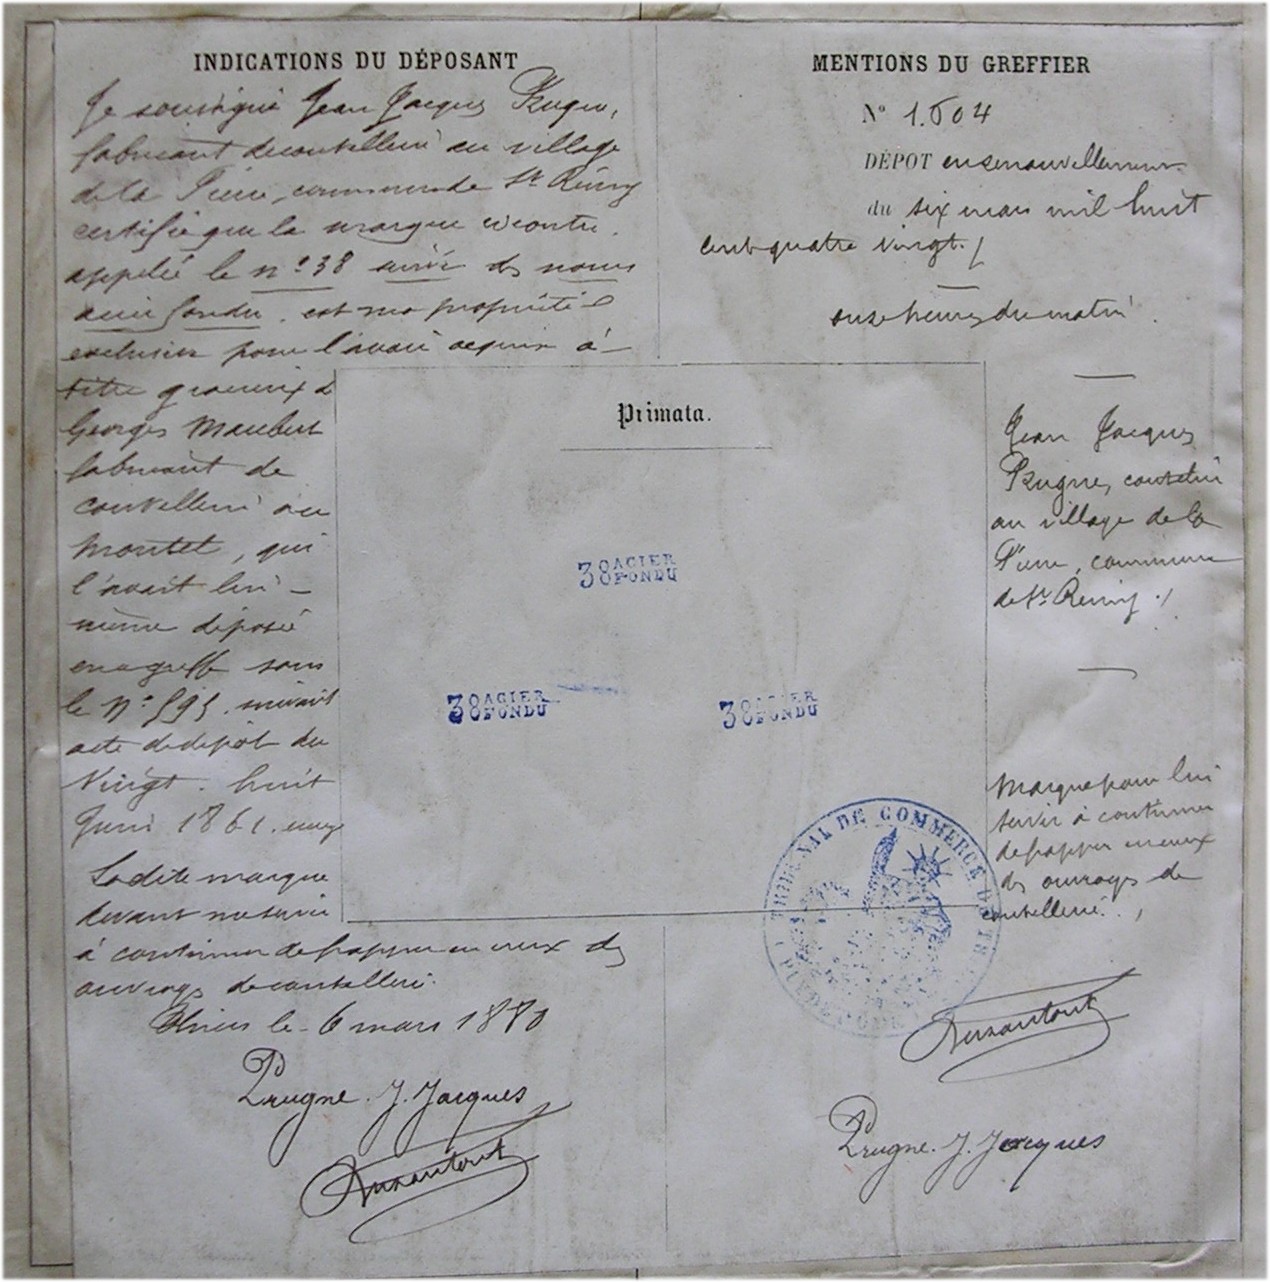 INDICATIONS DU DÉPOSANT
Je soussigné Jean Jacques Prugne,
fabricant de coutellerie au village
de la Pierre, commune de St Rémy
certifie que la marque ci contre
appelée le n° 38 suivi des mots
acier fondu est ma propriété
exclusive pour l'avoir acquise à
titre gracieux de
Georges Maubert
fabricant de
coutellerie au
Montel, qui
l'avait lui-
même déposée
au greffe sous
le N° 595 suivant
acte de dépôt du
Vingt-huit
Juin 1861.
Ladite marque
devant me servir
à continuer de frapper en creux des
ouvrages de coutellerie.
Thiers le 6 mars 1880
Prugne. J. Jacques
MENTIONS DU GREFFIER
N° 1.604
DÉPOT en renouvellement
du six mars mil huit
cent quatre vingt.
onze heures du matin.
Jean Jacques
Prugne, coutelier
au village de la
Pierre, commune
de St Remy.
Marque pour lui
servir à continuer
de frapper en creux
des ouvrages de
coutellerie.
Prugne. J. Jacques
Primata.
38 ACIER
FONDU
38 ACIER
FONDU
38 ACIER
FONDU
TRIBUNAL DE COMMERCE DE TH
PUY DE DOME